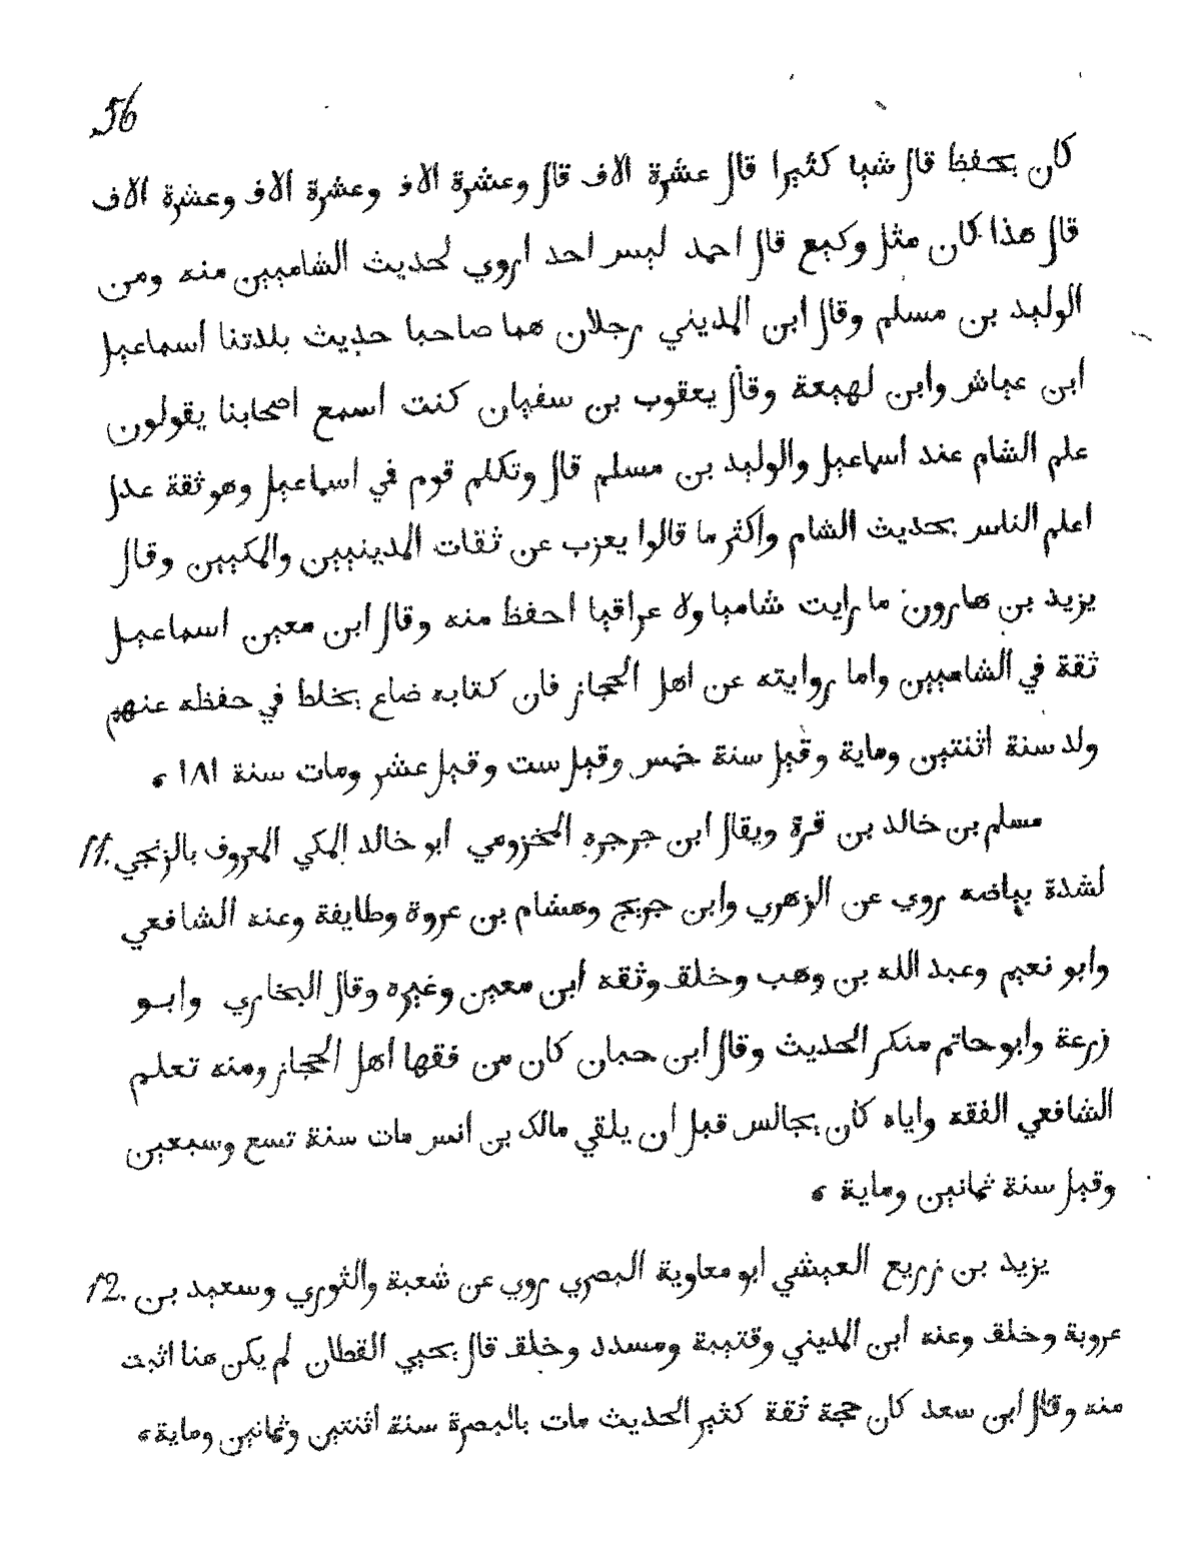 56
كان يحفظ قال شيا كثيرا قال عشرة الاف قال وعشرة الاف وعشرة الاف وعشرة الاف
قال هذا كان مثل وكيع قال احمد ليس احد اروي لحديث الشاميين منه ومن
الوليد بن مسلم وقال ابن المديني رجلان هما صاحبا حديث بلدتنا اسماعيل
ابن عياش وابن لهيعة وقال يعقوب بن سفيان كنت اسمع اصحابنا يقولون
علم الشام عند اسماعيل والوليد بن مسلم قال وتكلم قوم في اسماعيل وهو ثقة عدل
اعلم الناس بحديث الشام واكثر ما قالوا يعزب عن ثقات المدينيين والمكيين وقال
يزيد بن هارون ما رايت شاميا ولا عراقيا احفظ منه وقال ابن معين اسماعيل
ثقة في الشاميين واما روايته عن اهل الحجاز فان كتابه ضاع يخلط في حفظه عنهم
ولد سنة اثنتين وماية وقيل سنة خمس وقيل ست وقيل عشر ومات سنة ١٨١ ،
11. مسلم بن خالد بن قرة ويقال ابن جرجره المخزومي ابو خالد المكي المعروف بالزنجي
لشدة بياضه روي عن الزهري وابن جريج وهشام بن عروة وطايفة وعنه الشافعي
وابو نعيم وعبد الله بن وهب وخلق وثقه ابن معين وغيره وقال البخاري وابو
زرعة وابو حاتم منكر الحديث وقال ابن حبان كان من فقها اهل الحجاز ومنه تعلم
الشافعي الفقه واياه كان يجالس قبل ان يلقي مالك بن انس مات سنة تسع وسبعين
وقيل سنة ثمانين وماية ،
12. يزيد بن زريع العيشي ابو معاوية البصري روي عن شعبة والثوري وسعيد بن
عروبة وخلق وعنه ابن المديني وقتيبة ومسدد وخلق قال يحيي القطان لم يكن هنا اثبت
منه وقال ابن سعد كان حجة ثقة كثير الحديث مات بالبصرة سنة اثنتين وثمانين وماية ،